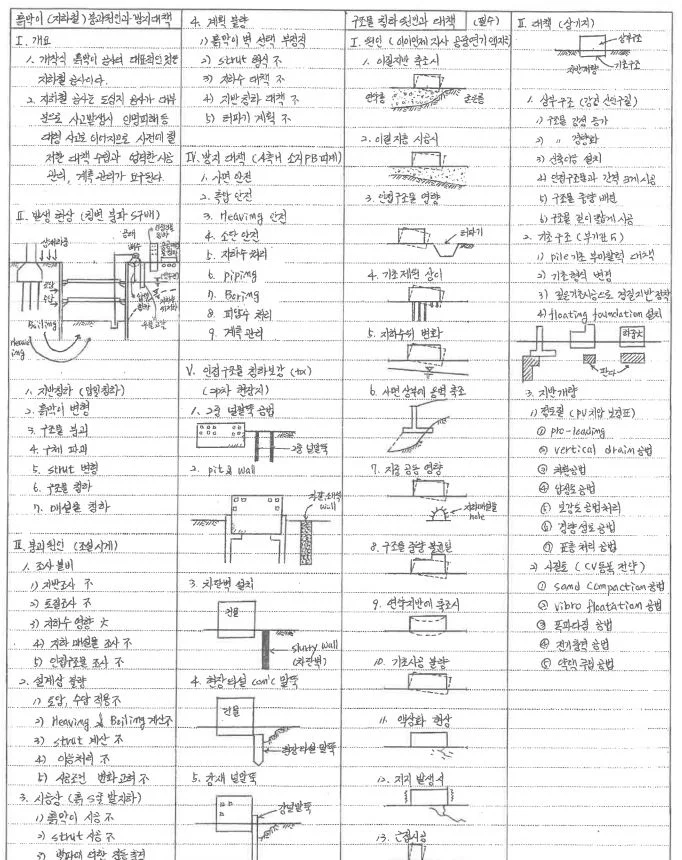 흙막이 (지하철) 붕괴원인과 방지대책
I. 개요
1. 개착식 흙막이 공사의 대표적인 것은
지하철 공사이다.
2. 지하철 공사는 도심지 공사가 대부
분으로 사고발생시 인명피해등
대형 사고로 이어지므로 사전에 철
저한 대책 수립과 성실한 시공
관리, 계측 관리가 요구된다.
II. 발생 현상
상재하중
토압
수압
Boiling
Heaving
1. 지반침하
2. 흙막이 변형
3. 구조물 붕괴
4. 구체 파괴
5. strut 변형
6. 구조물 침하
7. 매설물 침하
III. 붕괴원인 (조설시계)
1. 조사 불비
1) 지반조사 不
2) 토질조사 不
3) 지하수 영향 大
4) 지하 매설물 조사 不
5) 인접구조물 조사 不
2. 설계상 불량
1) 토압, 수압 적용 不
2) Heaving & Boiling 계산 不
3) strut 계산 不
4) 이음처리 不
5) 시공조건 변화고려 不
3. 시공상
1) 흙막이 시공 不
2) strut 시공 不
3) 발파에 의한 진동 충격
4. 계획 불량
1) 흙막이 벽 선택 부적격
2) strut 형식 不
3) 지하수 대책 不
4) 지반침하 대책 不
5) 터파기 계획 不
IV. 방지 대책
1. 사면 안전
2. 측압 안전
3. Heaving 안전
4. 소단 안전
5. 지하수 처리
6. piping
7. Boring
8. 피압수 처리
9. 계측 관리
V. 인접구조물 침하보강
1. 2중 널말뚝 공법
2중 널말뚝
2. pit & wall
wall
3. 차단벽 설치
건물
slurry wall
(차단벽)
4. 현장타설 con'c 말뚝
건물
현장타설 말뚝
5. 강재 널말뚝
강널말뚝
구조물 침하 원인과 대책 (필수)
I. 원인
1. 이질지반 축조시
연약층
2. 이질지층 시공시
3. 인접구조물 영향
터파기
4. 기초제원 상이
5. 지하수위 변화
6. 사면 상부에 옹벽 축조
7. 지중 공동 영향
지하매설물
hole
8. 구조물 중량 불균일
9. 연약지반에 축조시
10. 기초시공 불량
11. 액상화 현상
12. 지진 발생시
13. 근접시공
II. 대책 (상기지)
상부구조
기초구조
지반개량
1. 상부구조
1) 구조물 강성 증가
2) 〃 경량화
3) 신축이음 설치
4) 인접구조물과 간격 크게 시공
5) 구조물 중량 배분
6) 구조물 길이 짧게 시공
2. 기초구조
1) pile 기초 부마찰력 대책
2) 기초형식 변경
3) 깊은기초시공으로 경질지반 정착
4) floating foundation 설치
하중大
3. 지반개량
1) 점토질
① pre-loading
② vertical drain 공법
③ 치환공법
④ 압성토 공법
⑤ 보강토 공법처리
⑥ 경량성토 공법
⑦ 표층처리 공법
2) 사질토
① sand compaction 공법
② vibro floatation 공법
③ 폭파다짐 공법
④ 전기충격 공법
⑤ 약액 주입 공법